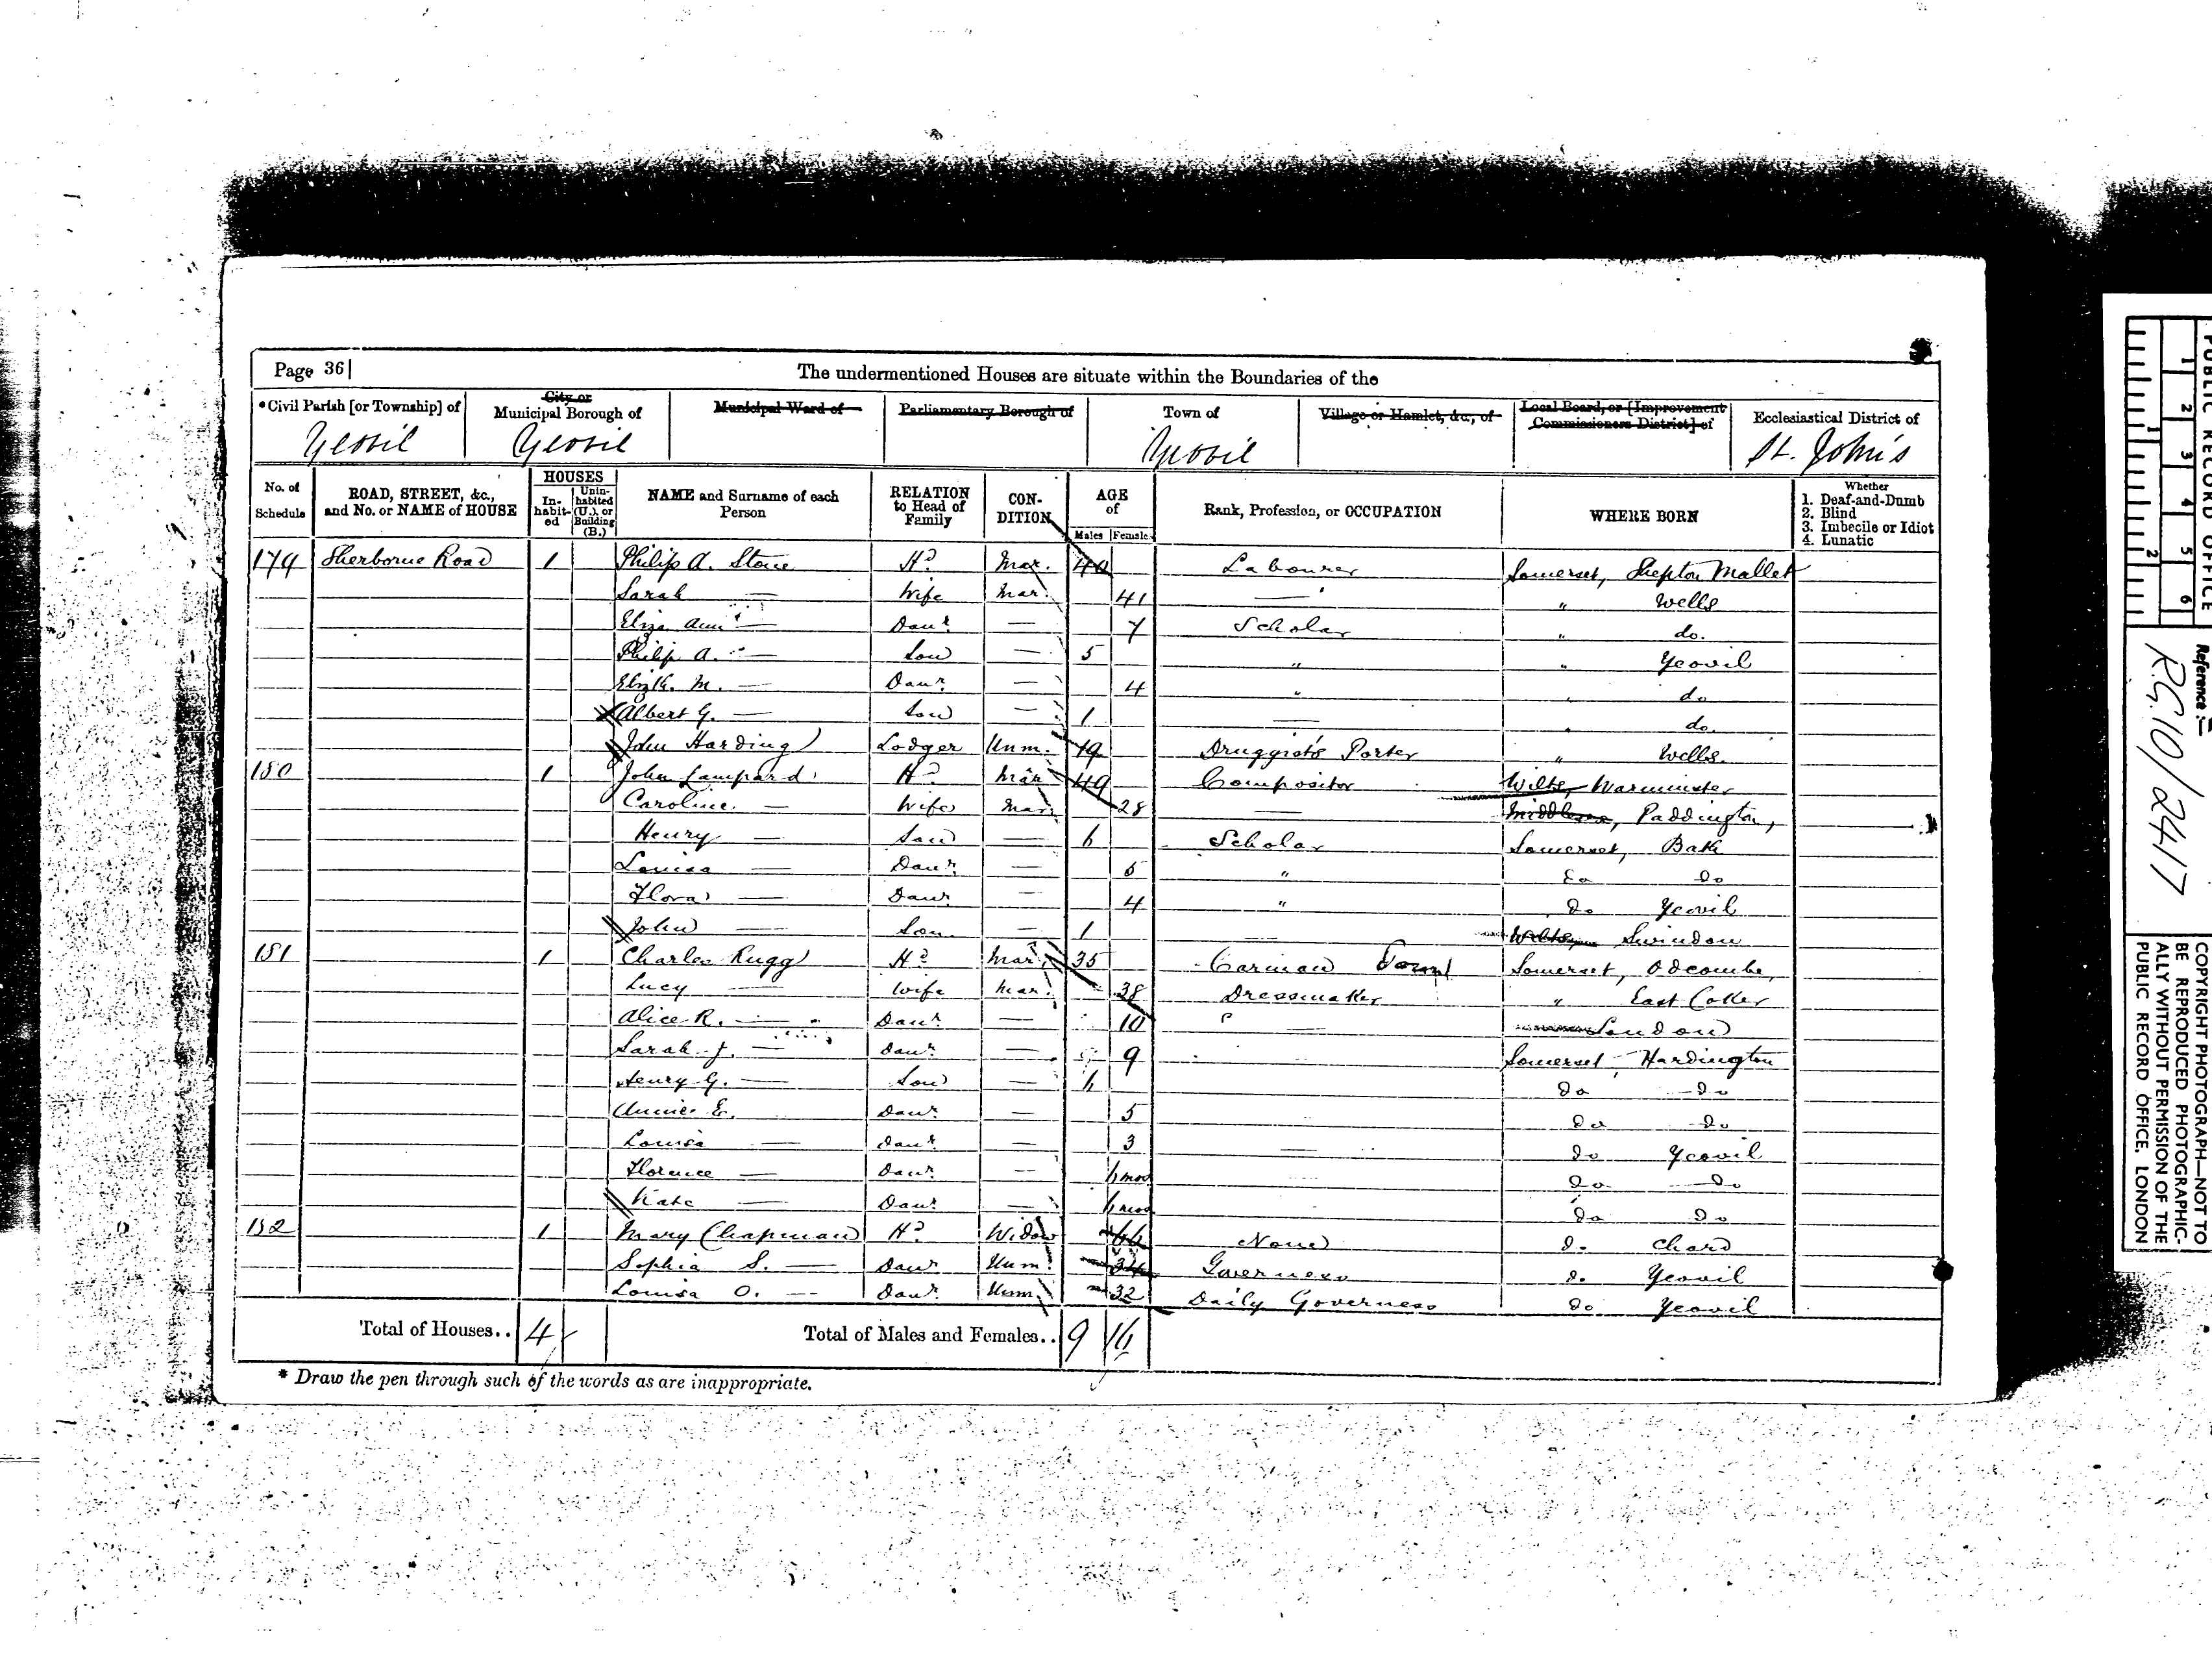 Page 36
The undermentioned Houses are situate within the Boundaries of the
*Civil Parish [or Township] of
City or Municipal Borough of
Municipal Ward of
Parliamentary Borough of
Town of
Village or Hamlet, &c., of
Local Board, or [Improvement Commissioners District] of
Ecclesiastical District of
Yeovil Yeovil Yeovil St. John's
No. of Schedule
ROAD, STREET, &c., and No. or NAME of HOUSE
HOUSES
In-habit-ed
Unin-habited (U.), or Building (B.)
NAME and Surname of each Person
RELATION to Head of Family
CON-DITION
AGE of
Males Females
Rank, Profession, or OCCUPATION
WHERE BORN
Whether
1. Deaf-and-Dumb
2. Blind
3. Imbecile or Idiot
4. Lunatic
179 Sherborne Road 1 Philip A. Stone Hd Mar. 40 Labourer Somerset, Shepton Mallet
Sarah — Wife Mar. 41 — " Wells
Eliza Ann — Daur. — 7 Scholar " do.
Philip A. — Son — 5 " " Yeovil
Elizth. M. — Daur. — 4 " " do
Albert G. — Son — 1 — " do.
John Harding Lodger Unm. 19 Druggist's Porter " Wells.
180 1 John Lampard Hd Mar 49 Compositor Wilts, Warminster
Caroline — Wife Mar 28 — Middlesex, Paddington,
Henry — Son — 6 Scholar Somerset, Bath
Louisa — Daur. — 5 " do do
Flora — Daur. — 4 " do Yeovil
John — Son — 1 — Wilts, Swindon
181 1 Charles Rugg Hd Mar. 35 Carman Somerset, Odcombe,
Lucy — Wife Mar. 38 Dressmaker " East Coker
Alice R. — Daur. — 10 — London
Sarah J. — Daur. — 9 Somerset, Hardington
Henry G. — Son — 6 do do
Annie E. Daur. — 5 do do
Louisa — Daur. — 3 — do Yeovil
Florence — Daur. — 6 mos do do
Kate — Daur. — 6 mos do do
182 1 Mary Chapman Hd Widow 66 None do Chard
Sophia S. — Daur. Unm. 34 Governess do Yeovil
Louisa O. — Daur. Unm. 32 Daily Governess do Yeovil
Total of Houses.. 4
Total of Males and Females.. 9 16
* Draw the pen through such of the words as are inappropriate.
PUBLIC RECORD OFFICE
1 2 3 4 5 6
1 2
Reference :—
R.G. 10/2417
COPYRIGHT PHOTOGRAPH—NOT TO
BE REPRODUCED PHOTOGRAPHIC-
ALLY WITHOUT PERMISSION OF THE
PUBLIC RECORD OFFICE, LONDON